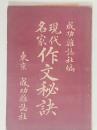 成功雑誌社編
現代名家作文秘訣
東京 成功雑誌社